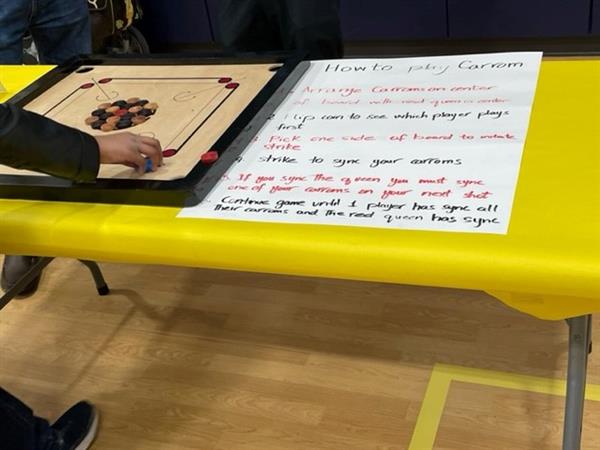 How to play Carrom
Arrange Carroms on center
of board with red queen in center
Flip coin to see which player plays
first
Pick one side of board to initiate
strike
Strike to sync your carroms
5. If you sync the queen you must sync
one of your carroms on your next shot
Continue game until 1 player has sync all
their carroms and the red queen has sync